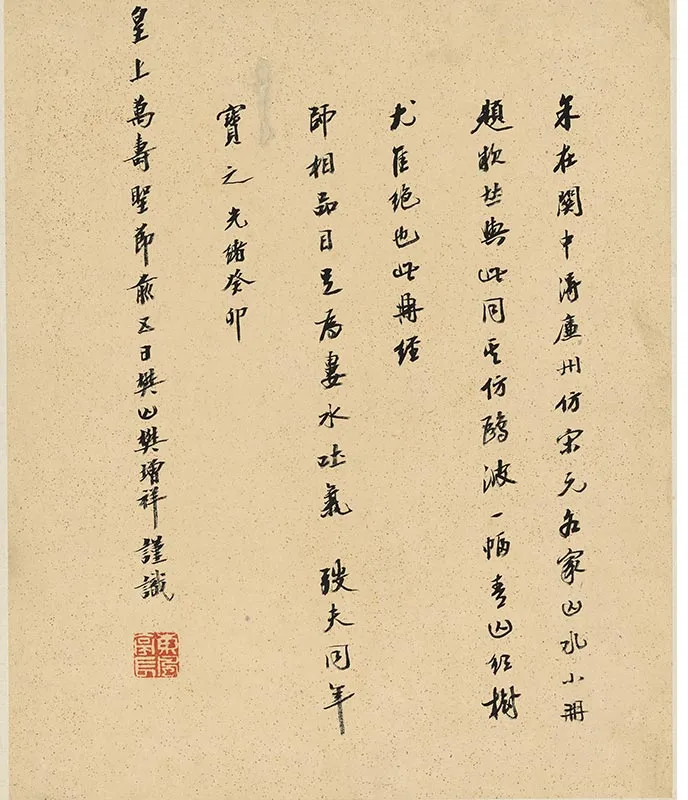 余在關中得廉州仿宋元名家山水小冊
題款與此同其仿鷗波一幅青山紅樹
尤佳絕也此冊經
師相品目足為婁水吐氣 弢夫同年
寶之 光緒癸卯
皇上萬壽聖節前五日樊山樊增祥謹識